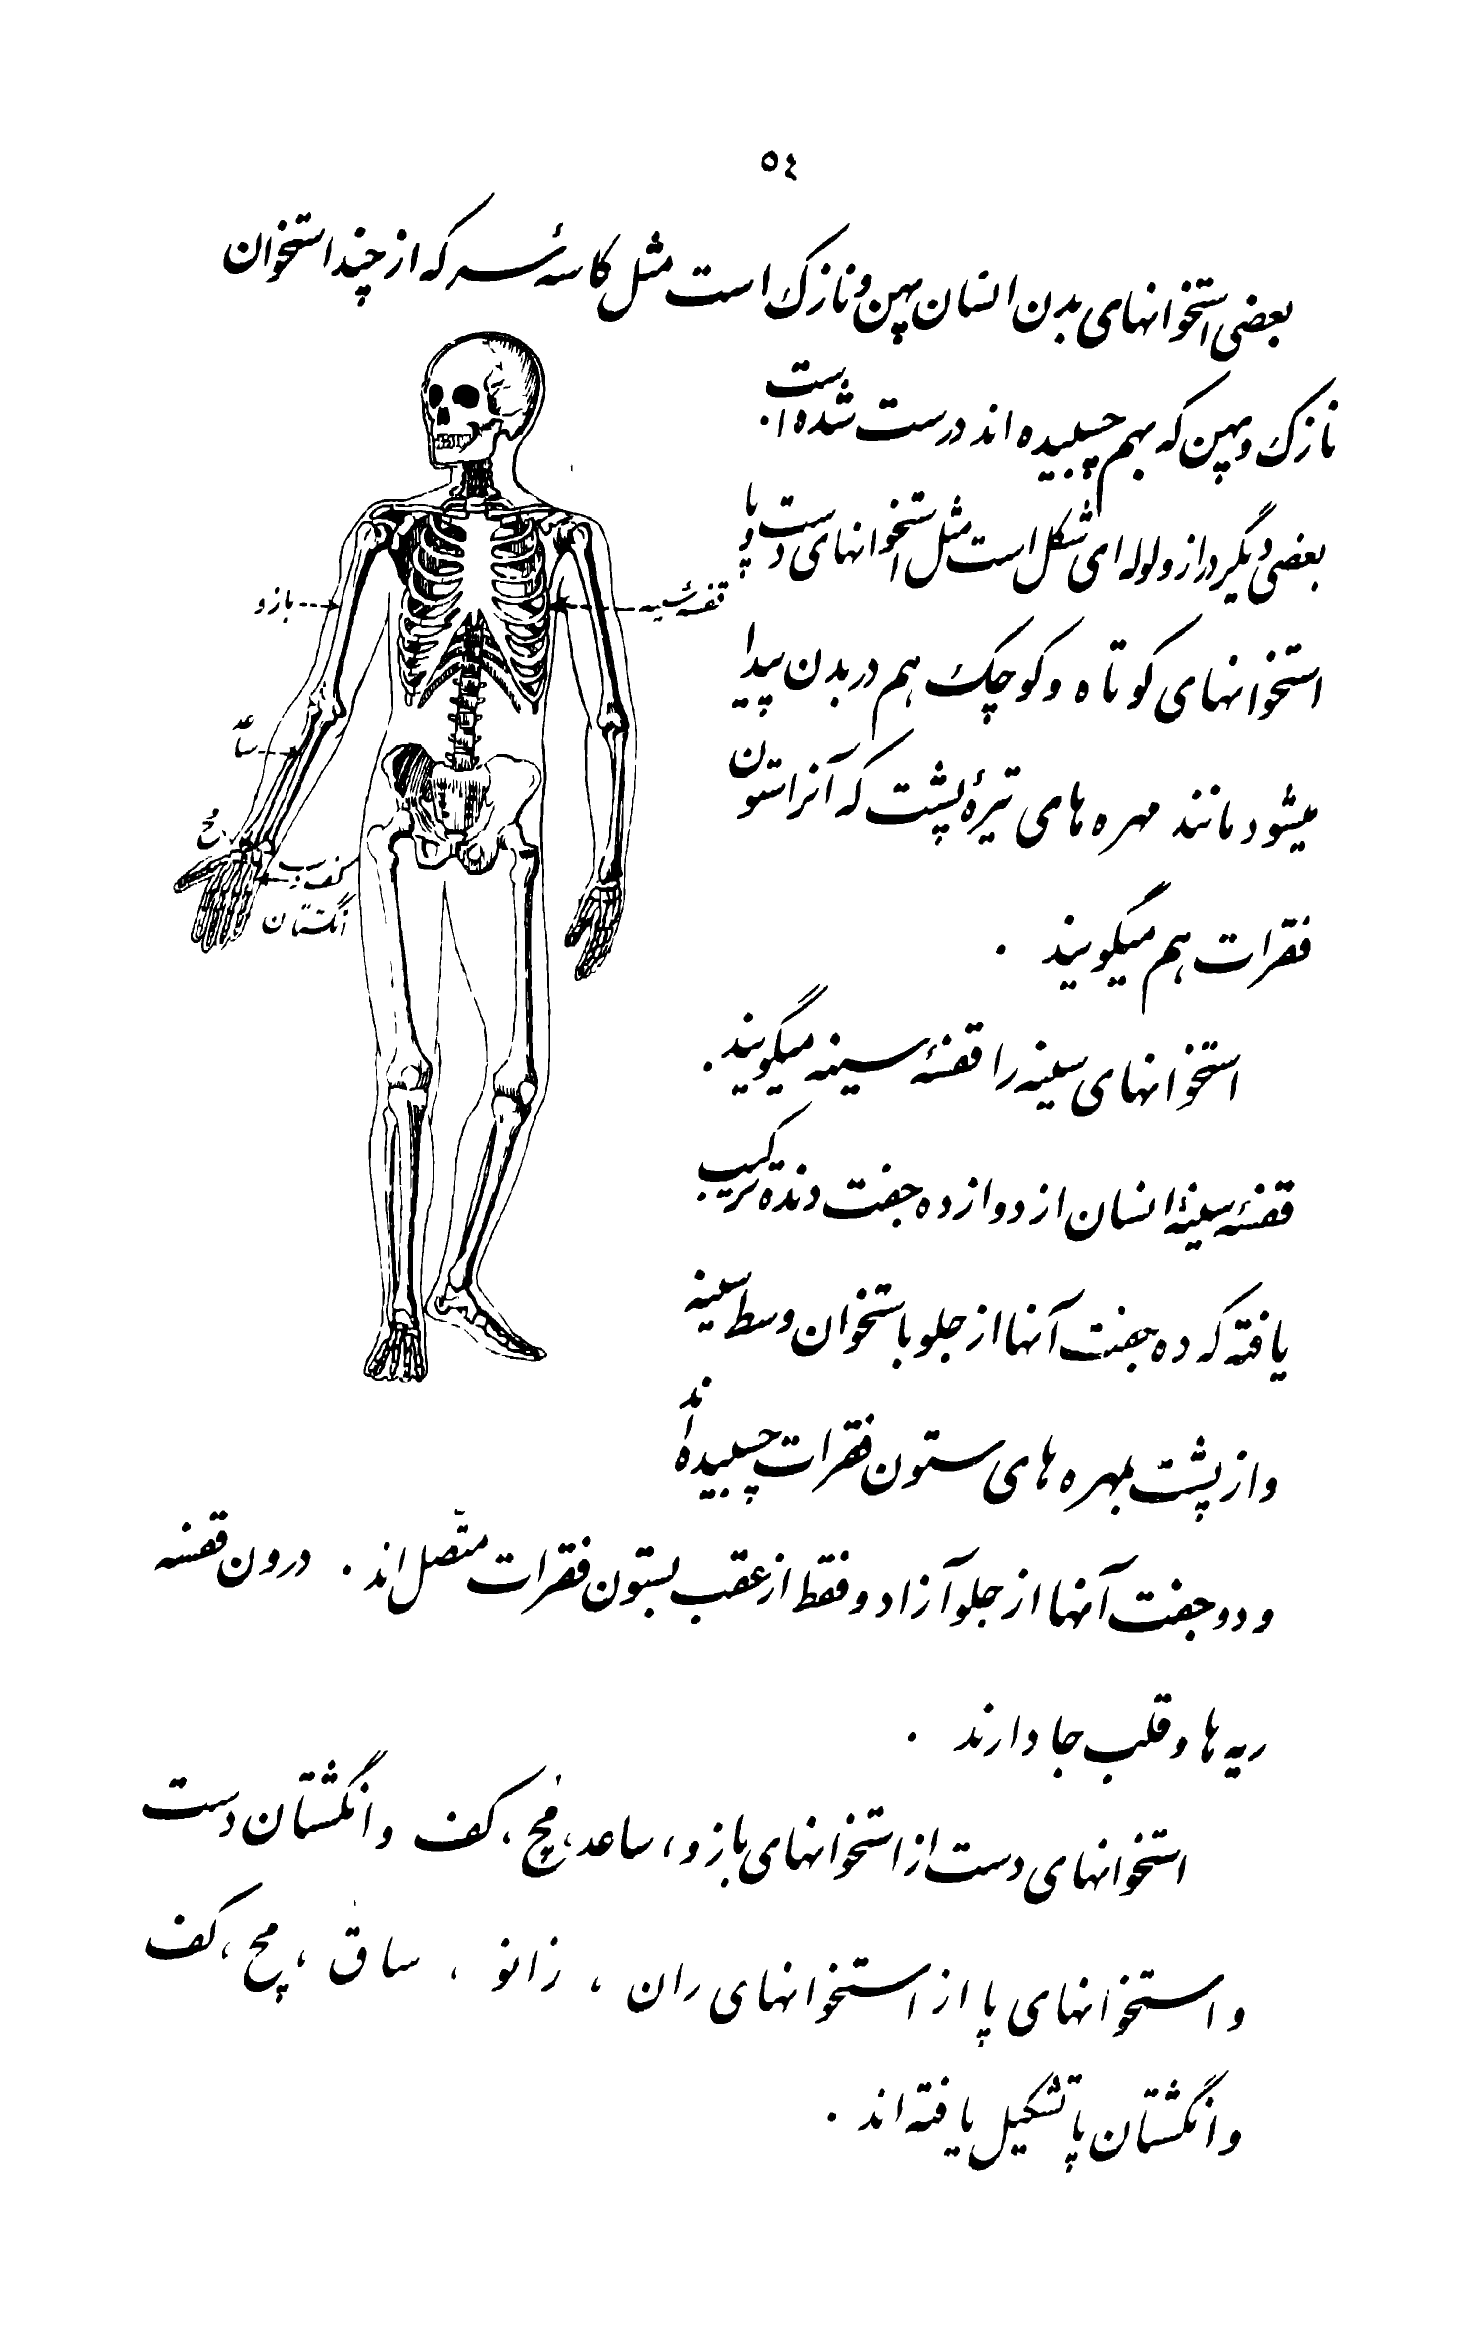 ٥٤
بعضی استخوانهای بدن انسان پهن و نازک است مثل کاسهٔ سر که از چند استخوان
نازک و پهن که بهم چسبیده اند درست شده است.
بعضی دیگر دراز و لوله ای شکل است مثل استخوانهای دست و پا
استخوانهای کوتاه و کوچک هم در بدن پیدا
میشود مانند مهره های تیرهٔ پشت که آنرا ستون
فقرات هم میگویند .
استخوانهای سینه را قفسهٔ سینه میگویند.
قفسهٔ سینهٔ انسان از دوازده جفت دنده ترکیب
یافته که ده جفت آنها از جلو باستخوان وسط سینه
و از پشت بمهره های ستون فقرات چسبیده اند
و دو جفت آنها از جلو آزاد و فقط از عقب بستون فقرات متّصل اند . درون قفسه
ریه ها و قلب جا دارند .
استخوانهای دست از استخوانهای بازو، ساعد، مچ، کف و انگشتان دست
و استخوانهای پا از استخوانهای ران ، زانو ، ساق ، مچ ، کف
و انگشتان پا تشکیل یافته اند .
قفسهٔ سینه
بازو
ساعد
مچ
کف و
انگشتان